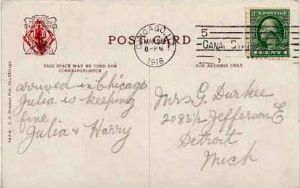 POST CARD
THIS SPACE MAY BE USED FOR
CORRESPONDENCE
FOR ADDRESS ONLY
CHICAGO
6-PM
1916
5
CANAL
arrived in Chicago
Julia is keeping
fine
Julia & Harry
Mrs G. Durkee
208½ Jefferson E
Detroit
Mich